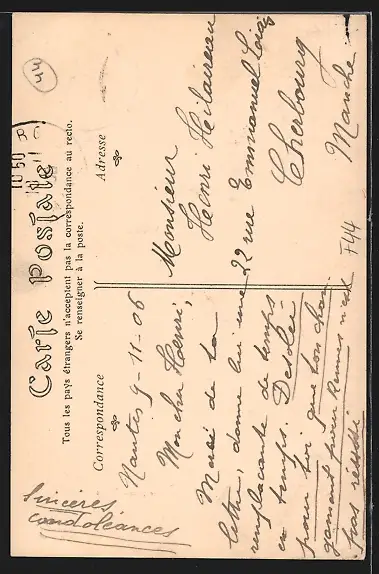 Carte Postale
Tous les pays étrangers n'acceptent pas la correspondance au recto.
Se renseigner à la poste.
Correspondance
Adresse
Nantes 9-11-06
Mon cher Henri,
Merci de ta
lettre, donne lui une
remplacante de temps
en temps. Desolé
pour toi que ton chan
gement pour Rennes n'est
pas réussi
Sincères
condoléances
Monsieur
Henri
22 rue Emmanuel
Cherbourg
Manche
F44
44
10 50